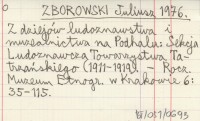 ZBOROWSKI Juliusz 1976.
Z dziejów ludoznawstwa i
muzealnictwa na Podhalu: Sekcja
Ludoznawcza Towarzystwa Ta-
trzańskiego (1911-1919). - Rocz.
Muzeum Etnogr. w Krakowie 6:
35-115.